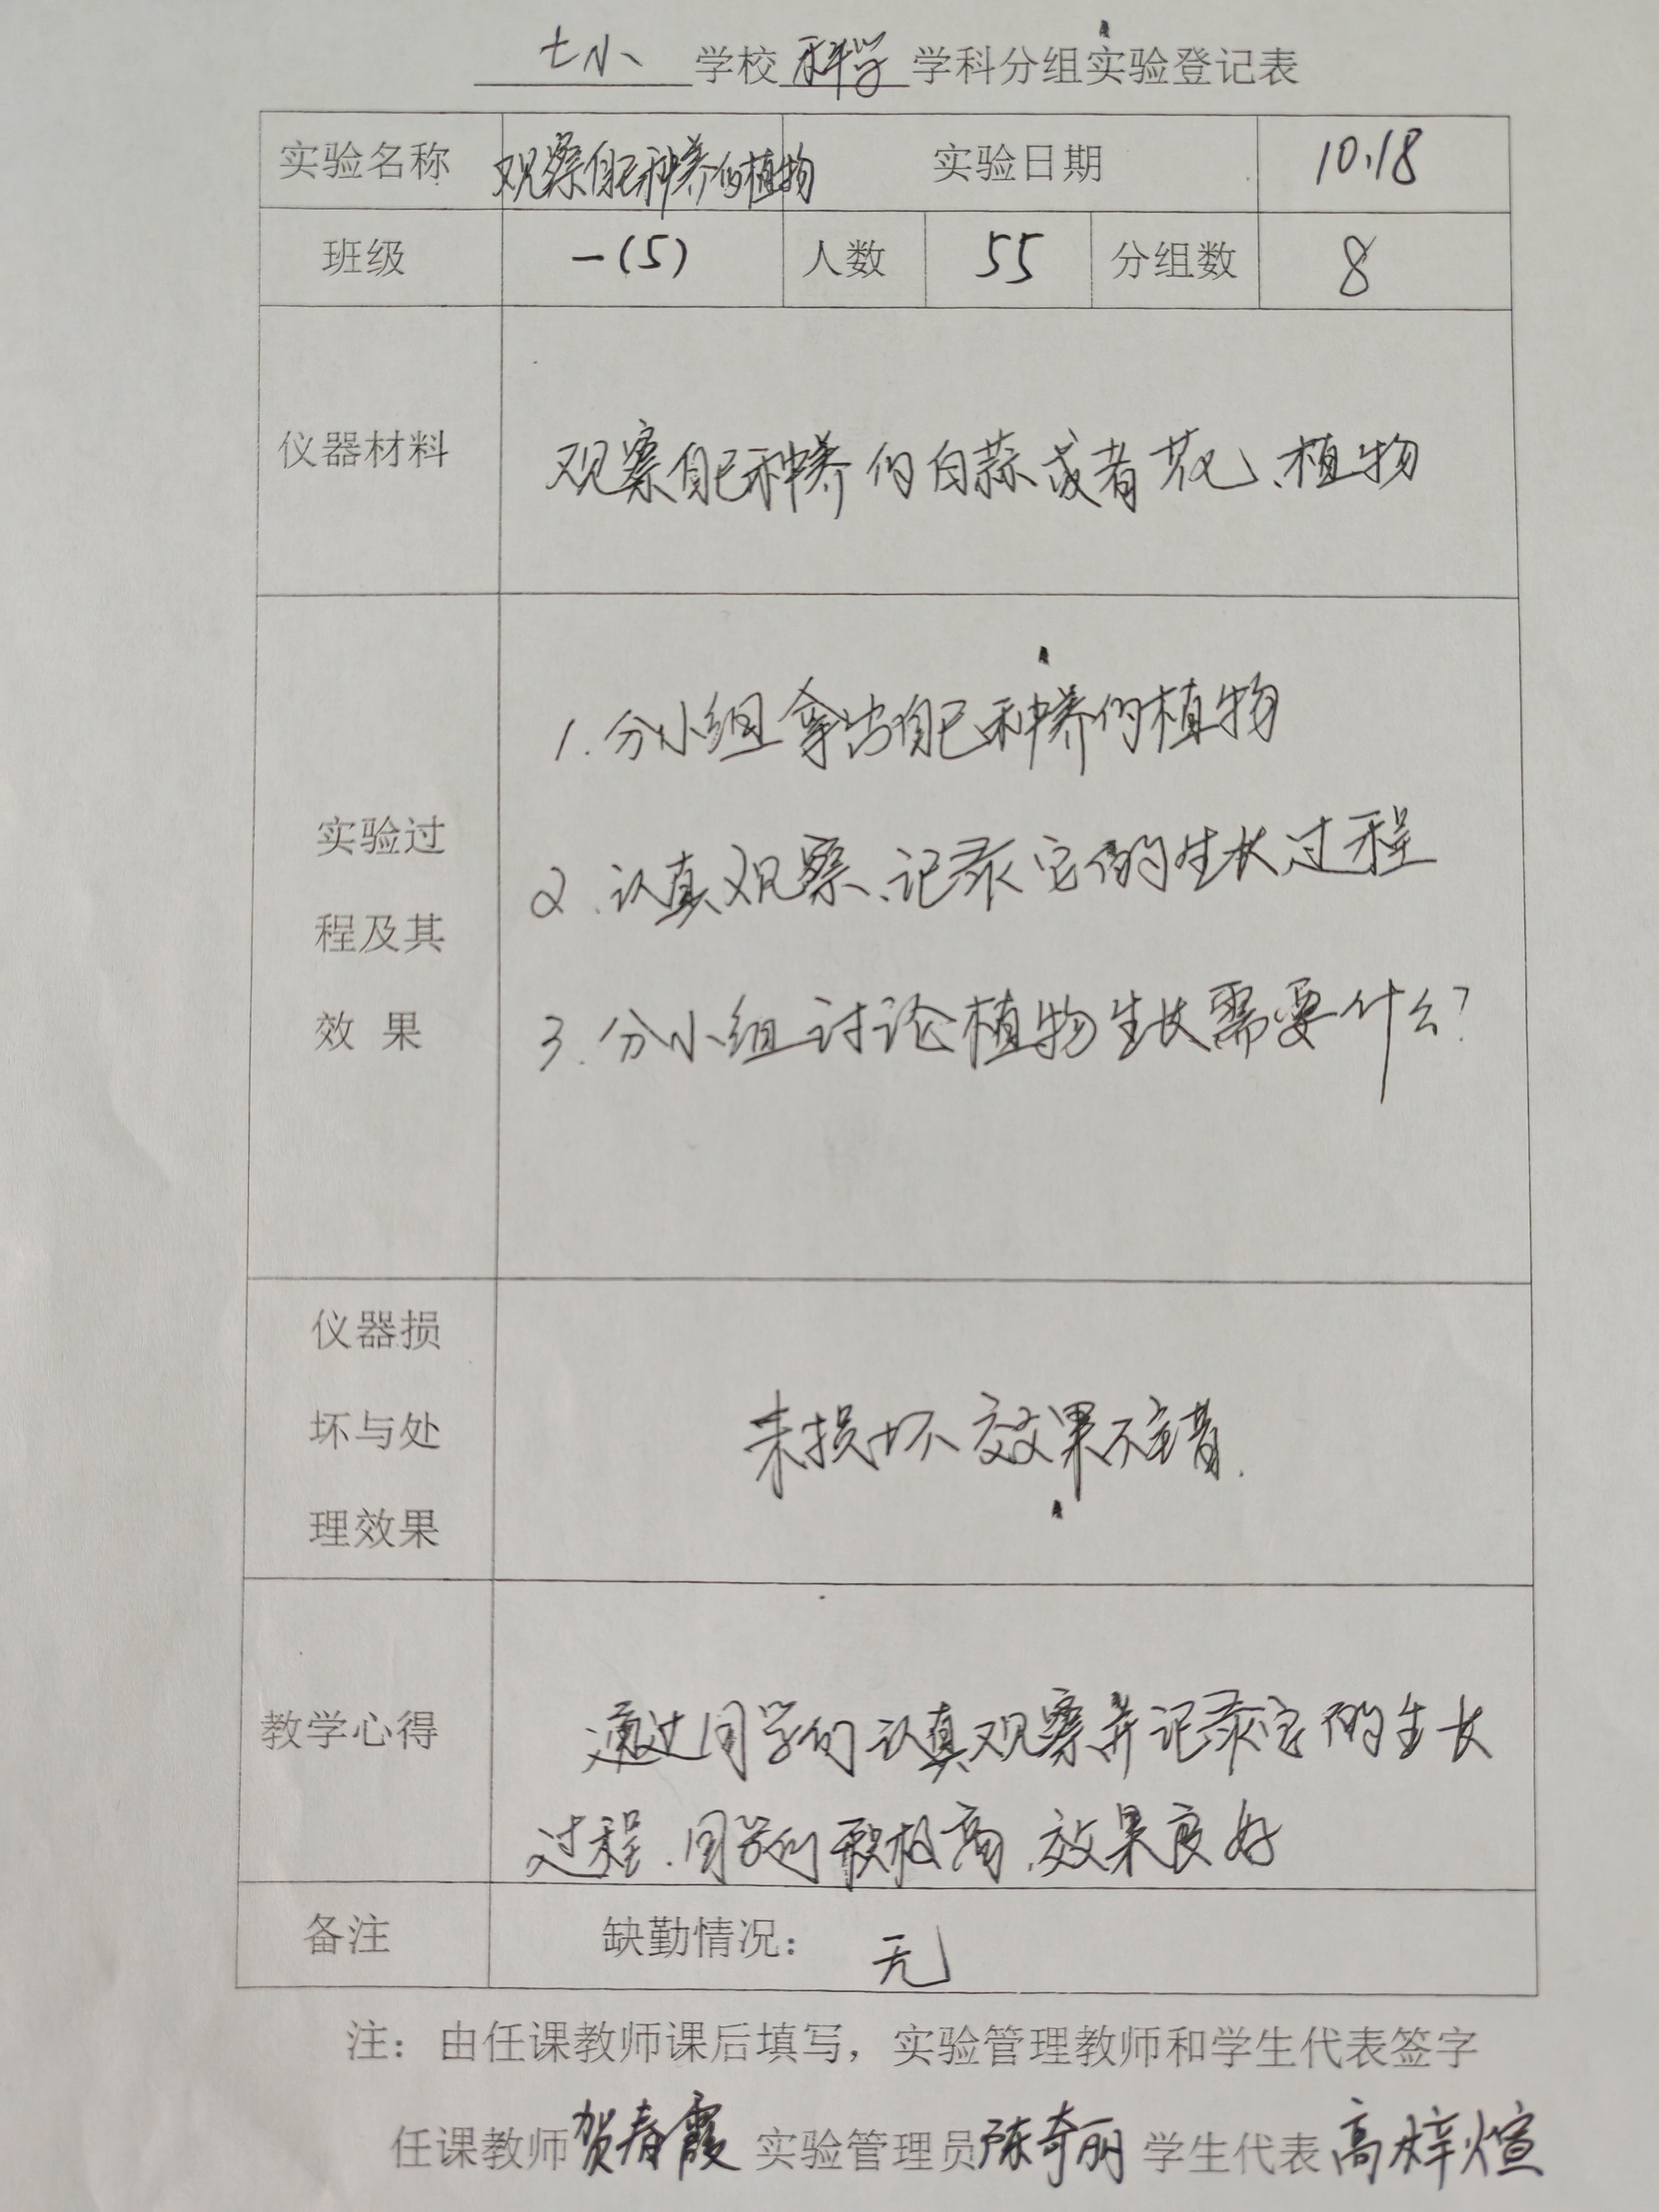 七小 学校 科学 学科分组实验登记表
实验名称 观察自己种养的植物 实验日期 10.18
班级 一(5) 人数 55 分组数 8
仪器材料 观察自己种养的白蒜或者花、植物
1.分小组拿出自己种养的植物
实验过
2.认真观察、记录它们的生长过程
程及其
效 果 3.分小组讨论植物生长需要什么?
仪器损
坏与处 未损坏效果不错.
理效果
教学心得 通过同学们认真观察并记录它的生长
过程.同学们积极高.效果良好
备注 缺勤情况: 无
注:由任课教师课后填写,实验管理教师和学生代表签字
任课教师 贺春霞 实验管理员 陈奇丽 学生代表 高梓煊